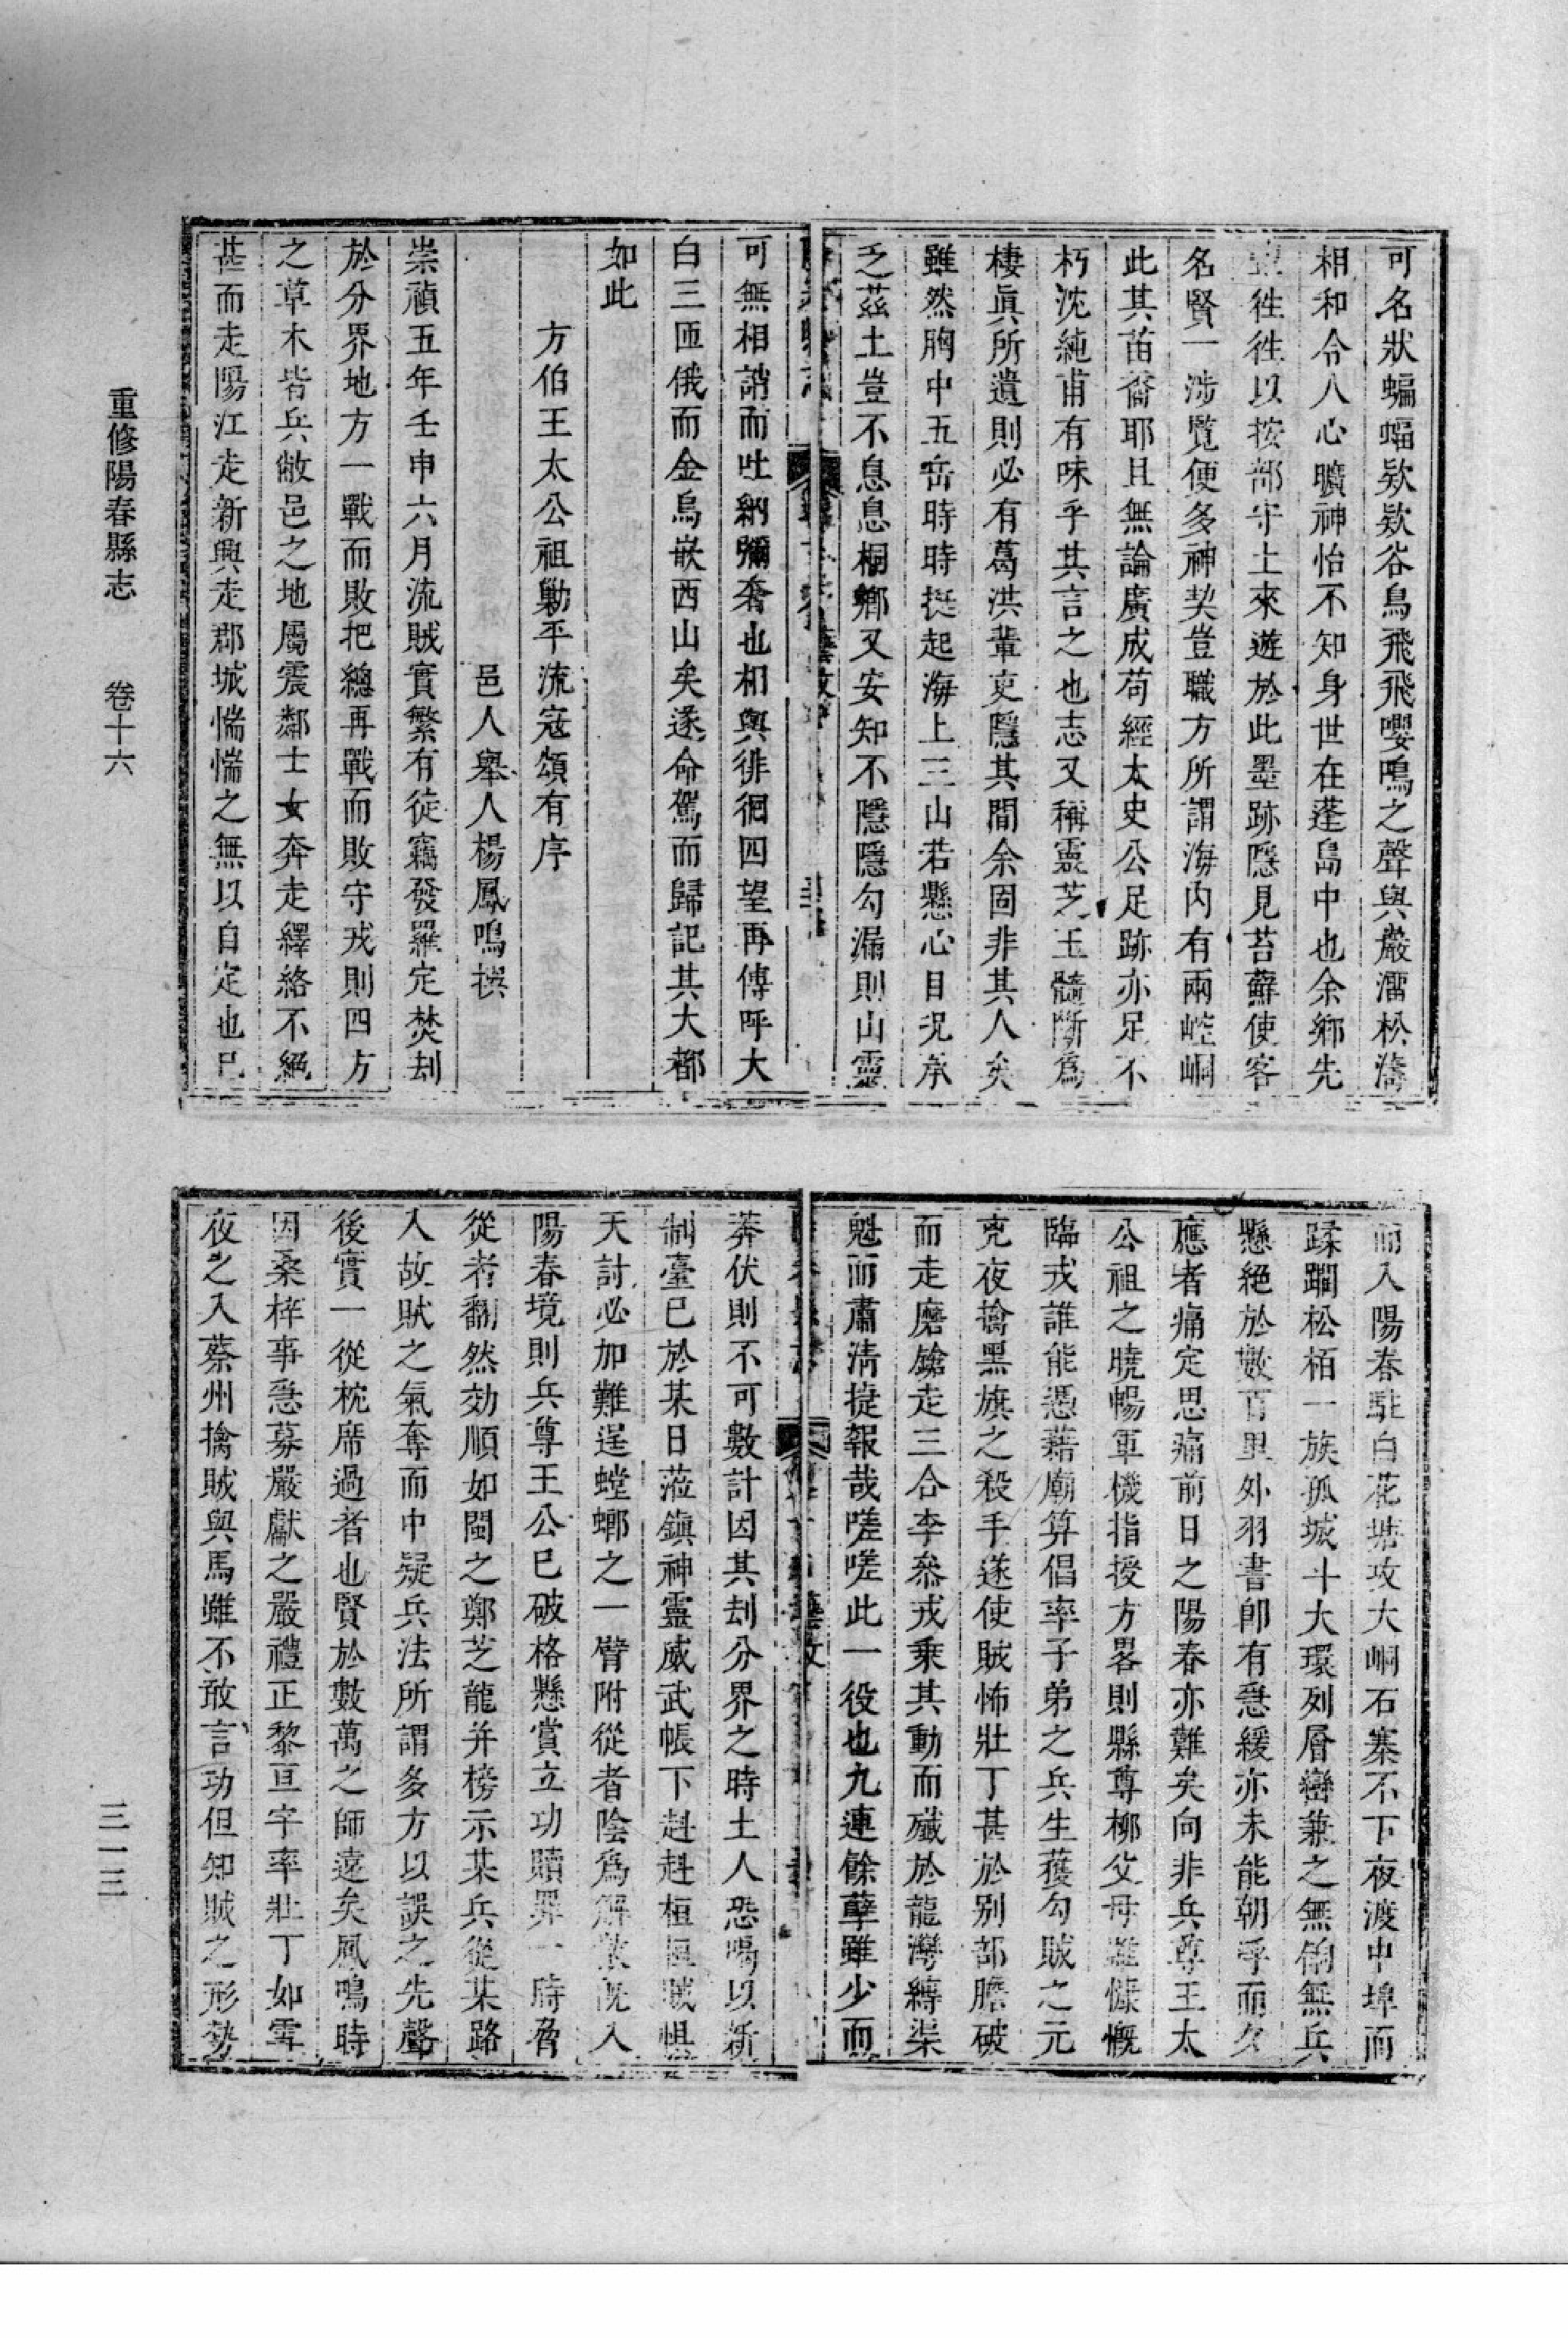 可名狀蝙蝠欵欵谷鳥飛飛嚶鳴之聲與巖溜松濤
相和令人心曠神怡不知身世在蓬島中也余鄉先
徃徃以按部守土來遊於此墨跡隱見苔蘚使客
名賢一涉覧便多神契豈職方所謂海内有兩崆峒
此其苗裔耶且無論廣成苟經太史公足跡亦足不
朽沈純甫有味乎其言之也志又稱靈芝玉髓斷爲
棲眞所遺則必有葛洪輩吏隱其間余固非其人矣
雖然胸中五岳時時挺起海上三山若懸心目况承
乏茲土豈不息息桐鄉又安知不隱隱勾漏則山靈
可無相誚而吐納彌奢也相與徘徊四望再傳呼大
白三匝俄而金烏嵌西山矣遂命駕而歸記其大都
如此
方伯王太公祖勦平流寇頌有序
邑人舉人楊鳳鳴撰
崇禎五年壬申六月流賊實繁有徒竊發羅定焚刦
於分界地方一戰而敗把總再戰而敗守戎則四方
之草木皆兵敝邑之地屬震鄰士女奔走繹絡不絕
甚而走陽江走新興走郡城惴惴之無以自定也已
重修陽春縣志 卷十六
而入陽春駐白花塘攻大峒石寨不下夜渡中埠而
蹂躙松栢一族孤城斗大環列層巒兼之無餉無兵
懸絕於數百里外羽書卽有急緩亦未能朝呼而夕
應者痛定思痛前日之陽春亦難矣向非兵尊王太
公祖之曉暢軍機指授方畧則縣尊柳父母雖慷慨
臨戎誰能憑藉廟算倡率子弟之兵生獲勾賊之元
兇夜擒黑旗之殺手遂使賊怖壯丁甚於别部膽破
而走磨鎗走三合李叅戎乗其動而殲於龍灣縛渠
魁而肅淸捷報哉嗟嗟此一役也九連餘孽雖少而
莽伏則不可數計因其刦分界之時土人恐喝以新
制臺已於某日蒞鎭神靈威武帳下赳赳桓桓賊惧
天討必加難逞螳螂之一臂附從者陰爲解散旣入
陽春境則兵尊王公已破格懸賞立功贖罪一時脅
從者翻然効順如閩之鄭芝龍并榜示某兵從某路
入故賊之氣奪而中疑兵法所謂多方以誤之先聲
後實一從枕席過者也賢於數萬之師遠矣鳳鳴時
因桑梓事急募嚴獻之嚴禮正黎亘宇率壯丁如雪
夜之入蔡州擒賊與馬雖不敢言功但知賊之形勢
三一三